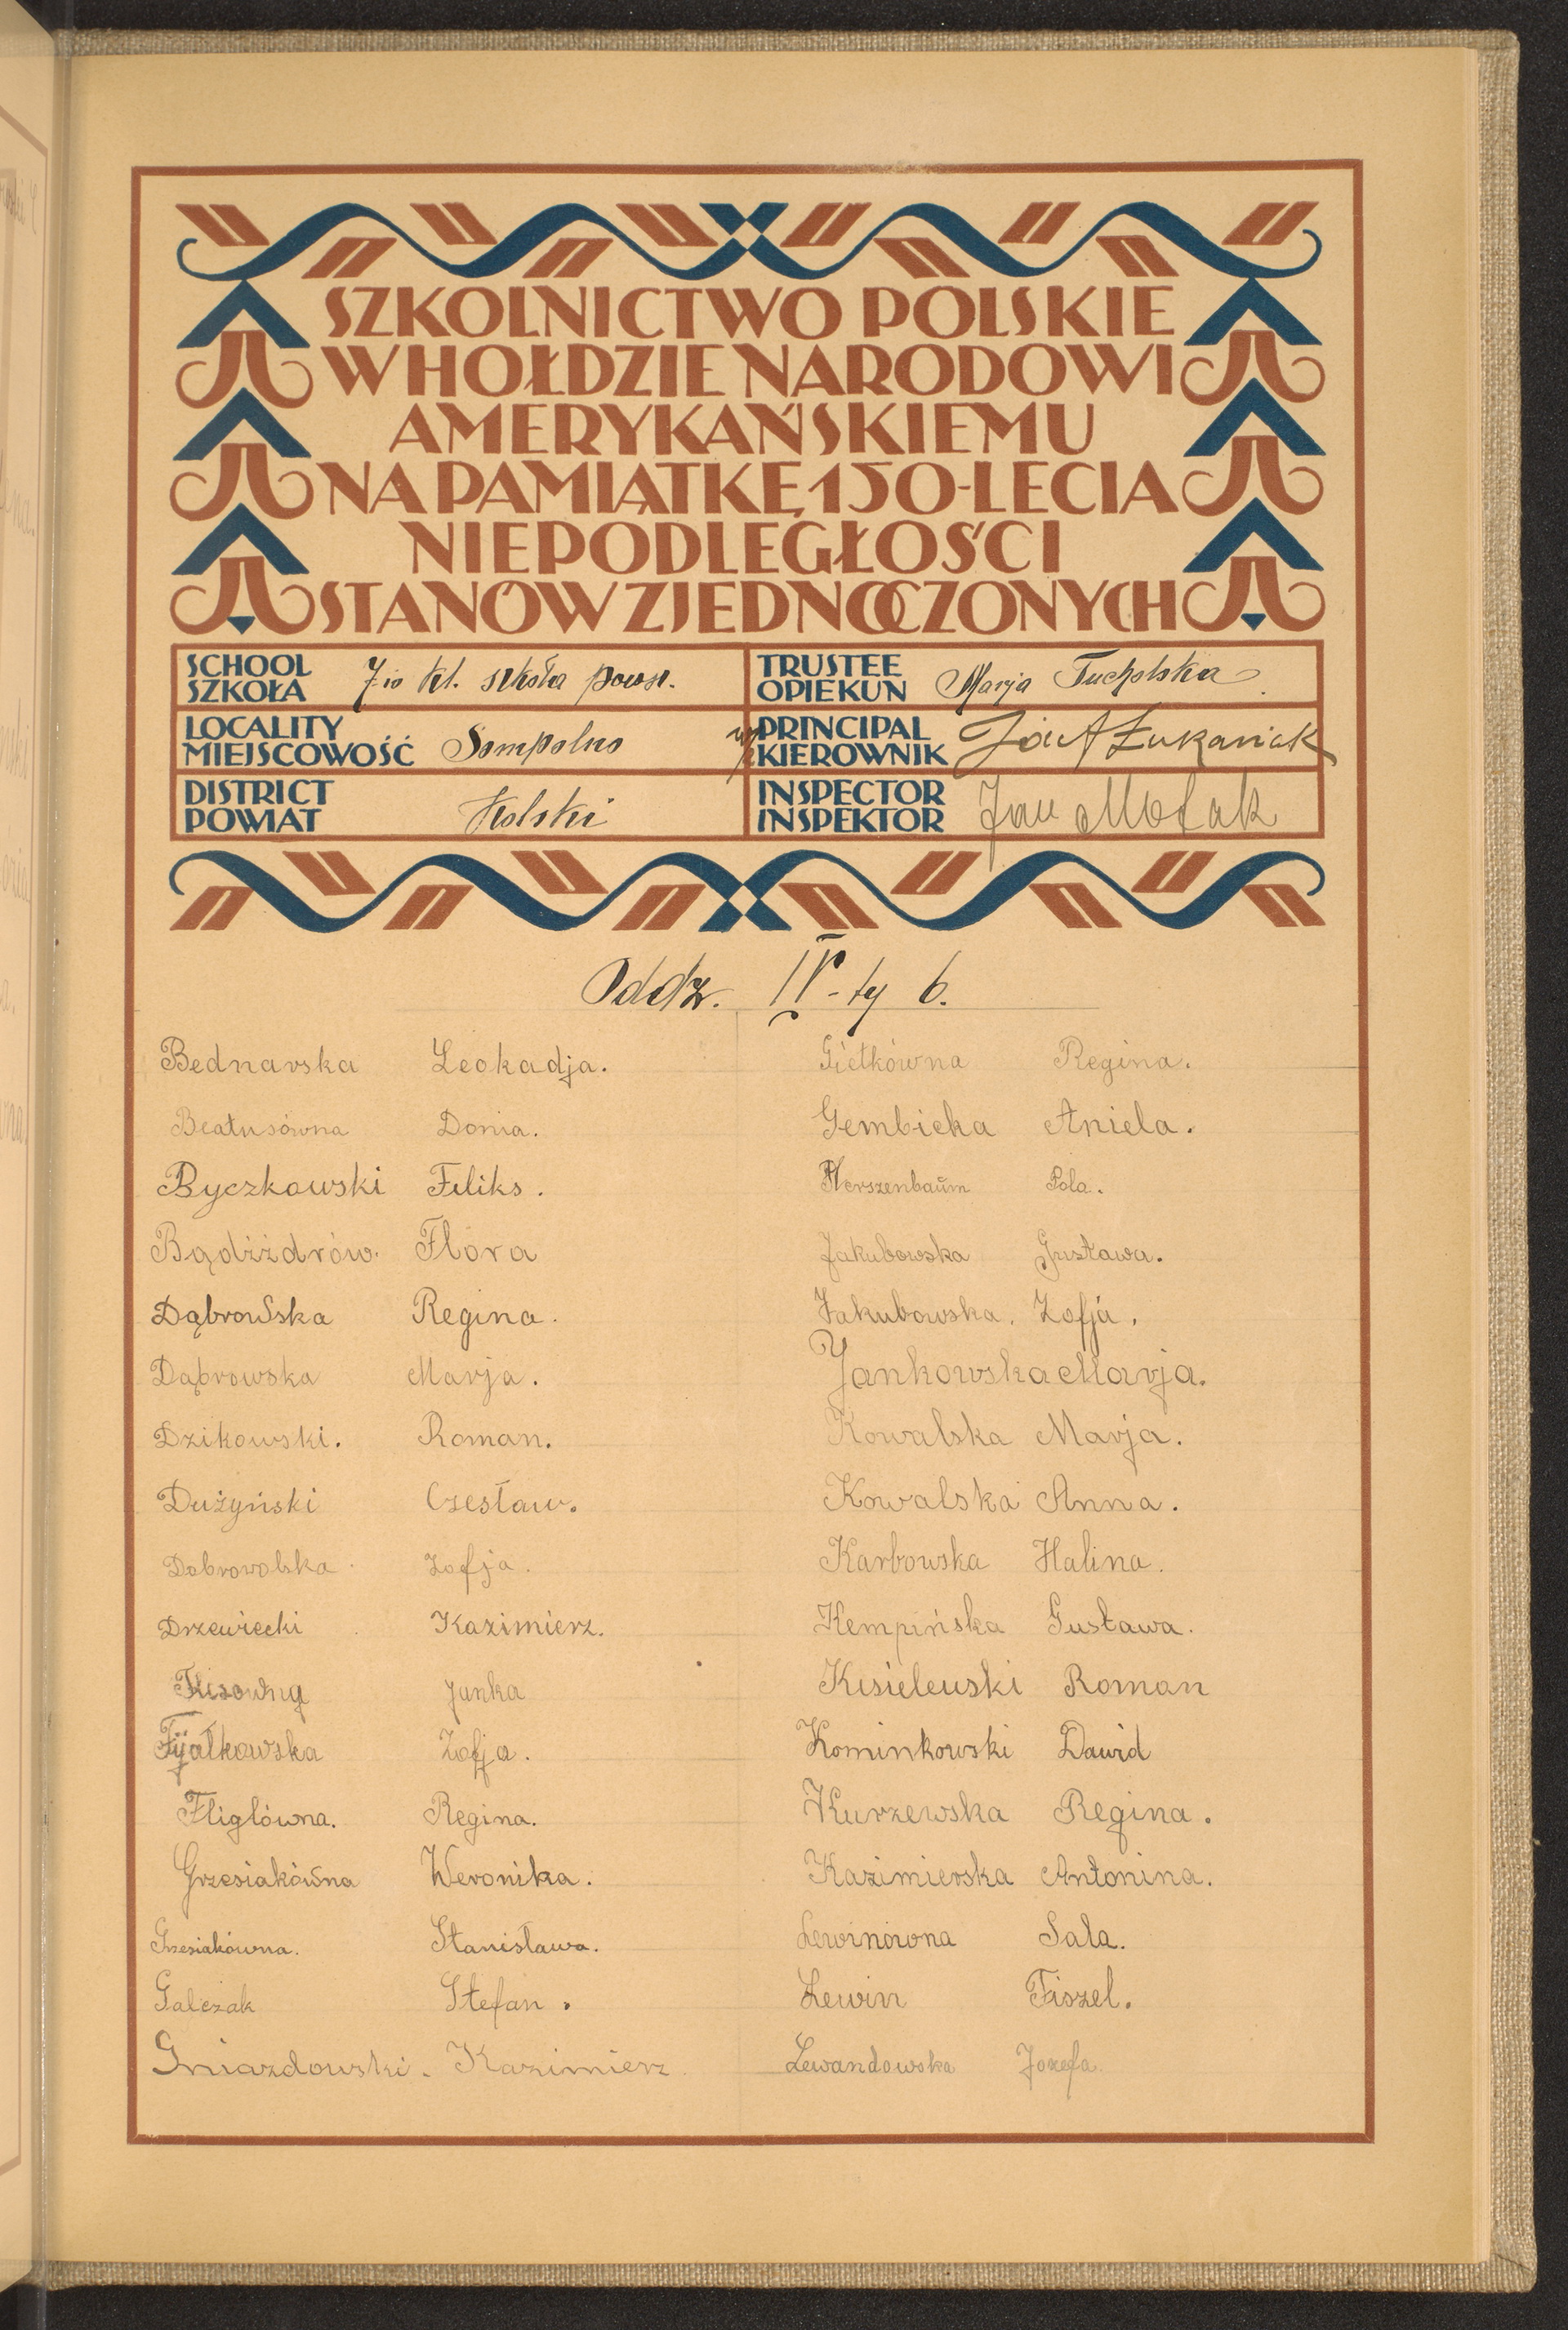 SZKOLNICTWO POLSKIE
W HOŁDZIE NARODOWI
AMERYKAŃSKIEMU
NA PAMIĄTKĘ 150-LECIA
NIEPODLEGŁOŚCI
STANÓW ZJEDNOCZONYCH
SCHOOL
SZKOŁA 7-io kl. szkoła powsz.
TRUSTEE
OPIEKUN Marja Tucholska
LOCALITY
MIEJSCOWOŚĆ Sompolno
PRINCIPAL
KIEROWNIK Łukasiak
DISTRICT
POWIAT Kolski
INSPECTOR
INSPEKTOR Jan
Oddz. IV-ty b.
Bednarska Leokadja.
Beatusówna Donia.
Byczkowski Feliks.
Bądźżdrów. Flora
Dąbrowska Regina.
Dąbrowska Marja.
Dzikowski. Roman.
Dużyński Czesław.
Dobrowolska Zofja.
Drzewiecki Kazimierz.
Janka
Fijałkowska Zofja.
Fliglówna. Regina.
Grzesiakówna Weronika.
Grzesiakówna. Stanisława.
Galczak Stefan.
Gniazdowski. Kazimierz
Gietkówna Regina.
Gembicka Aniela.
Herszenbaum Pola.
Jakubowska Gustawa.
Jakubowska. Zofja.
Jankowska Marja.
Kowalska Marja.
Kowalska Anna.
Karbowska Halina.
Kempińska Gustawa.
Kisielewski Roman
Kominkowski Dawid
Kurzewska Regina.
Kazimierska Antonina.
Lewinówna Sala.
Lewin Fiszel.
Lewandowska Jozefa.